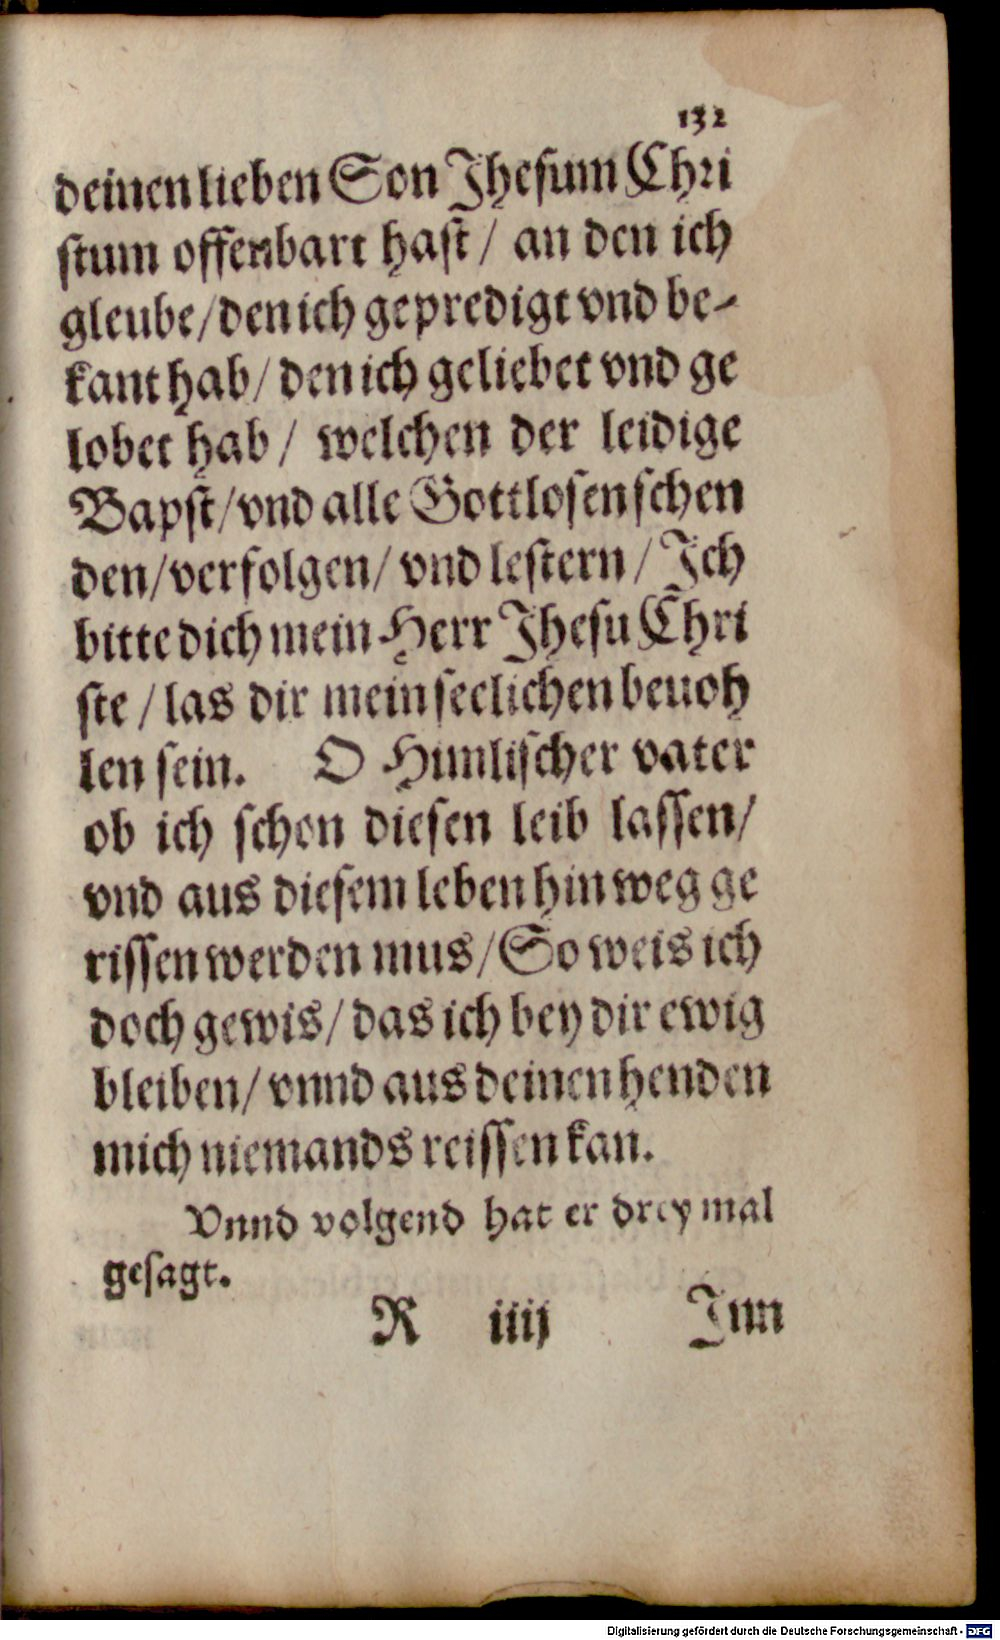 132
deinen lieben Son Jhesum Chri
stum offenbart hast / an den ich
gleube / den ich gepredigt vnd be-
kant hab / den ich geliebet vnd ge
lobet hab / welchen der leidige
Bapst / vnd alle Gottlosen schen
den / verfolgen / vnd lestern / Ich
bitte dich mein Herr Jhesu Chri
ste / las dir mein seelichen beuoh
len sein. O Himlischer vater
ob ich schon diesen leib lassen /
vnd aus diesem leben hinweg ge
rissen werden mus / So weis ich
doch gewis / das ich bey dir ewig
bleiben / vnnd aus deinen henden
mich niemands reissen kan.
Vnnd volgend hat er drey mal
gesagt.
R iiij Inn
Digitalisierung gefördert durch die Deutsche Forschungsgemeinschaft - DFG